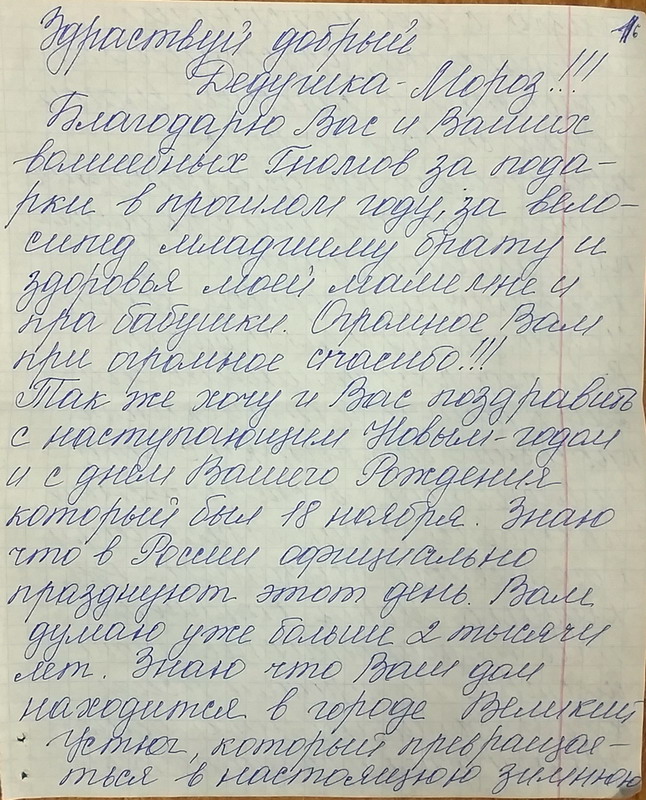 Здраствуй добрый
Дедушка-Мороз!!!
Благодарю Вас и Ваших
волшебных Гномов за пода-
рки в прошлом году, за вело-
сипед младшему брату и
здоровья моей мамы мне и
пра бабушки. Огромное Вам
при огромное спасибо!!!
Так же хочу и Вас поздравить
с наступающим Новым-годом
и с днем Вашего Рождения
который был 18 ноября. Знаю
что в России официально
празднуют этот день. Вам
думаю уже больше 2 тысячи
лет. Знаю что Ваш дом
находится в городе Великий
Устюг, который превращае-
ться в настоящую зимнюю